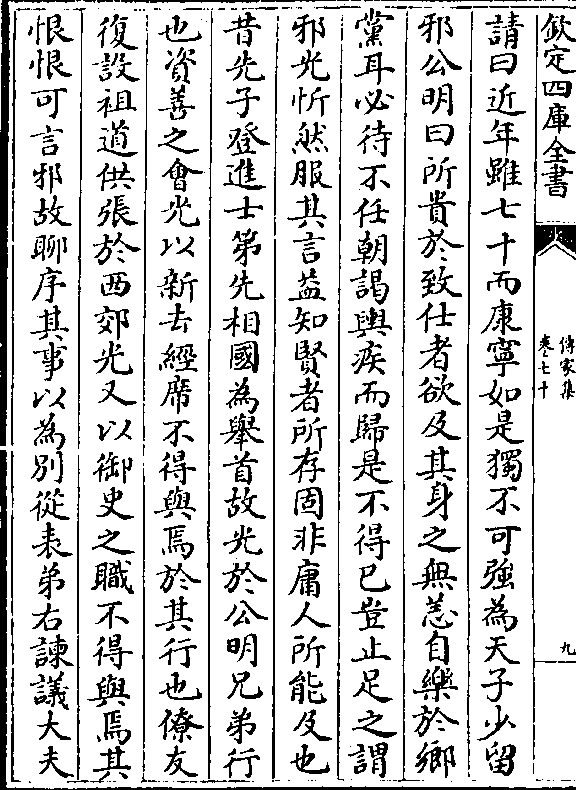 欽定四庫全書
傳家集
卷七十
九
請曰近年雖七十而康寧如是獨不可強為天子少留
邪公明曰所貴於致仕者欲及其身之無恙自樂於鄉
黨耳必待不任朝謁輿疾而歸是不得已豈止足之謂
邪光忻然服其言益知賢者所存固非庸人所能及也
昔先子登進士第先相國為舉首故光於公明兄弟行
也資善之會光以新去經席不得與焉於其行也僚友
復設祖道供張於西郊光又以御史之職不得與焉其
恨恨可言邪故聊序其事以為別從表弟右諫議大夫